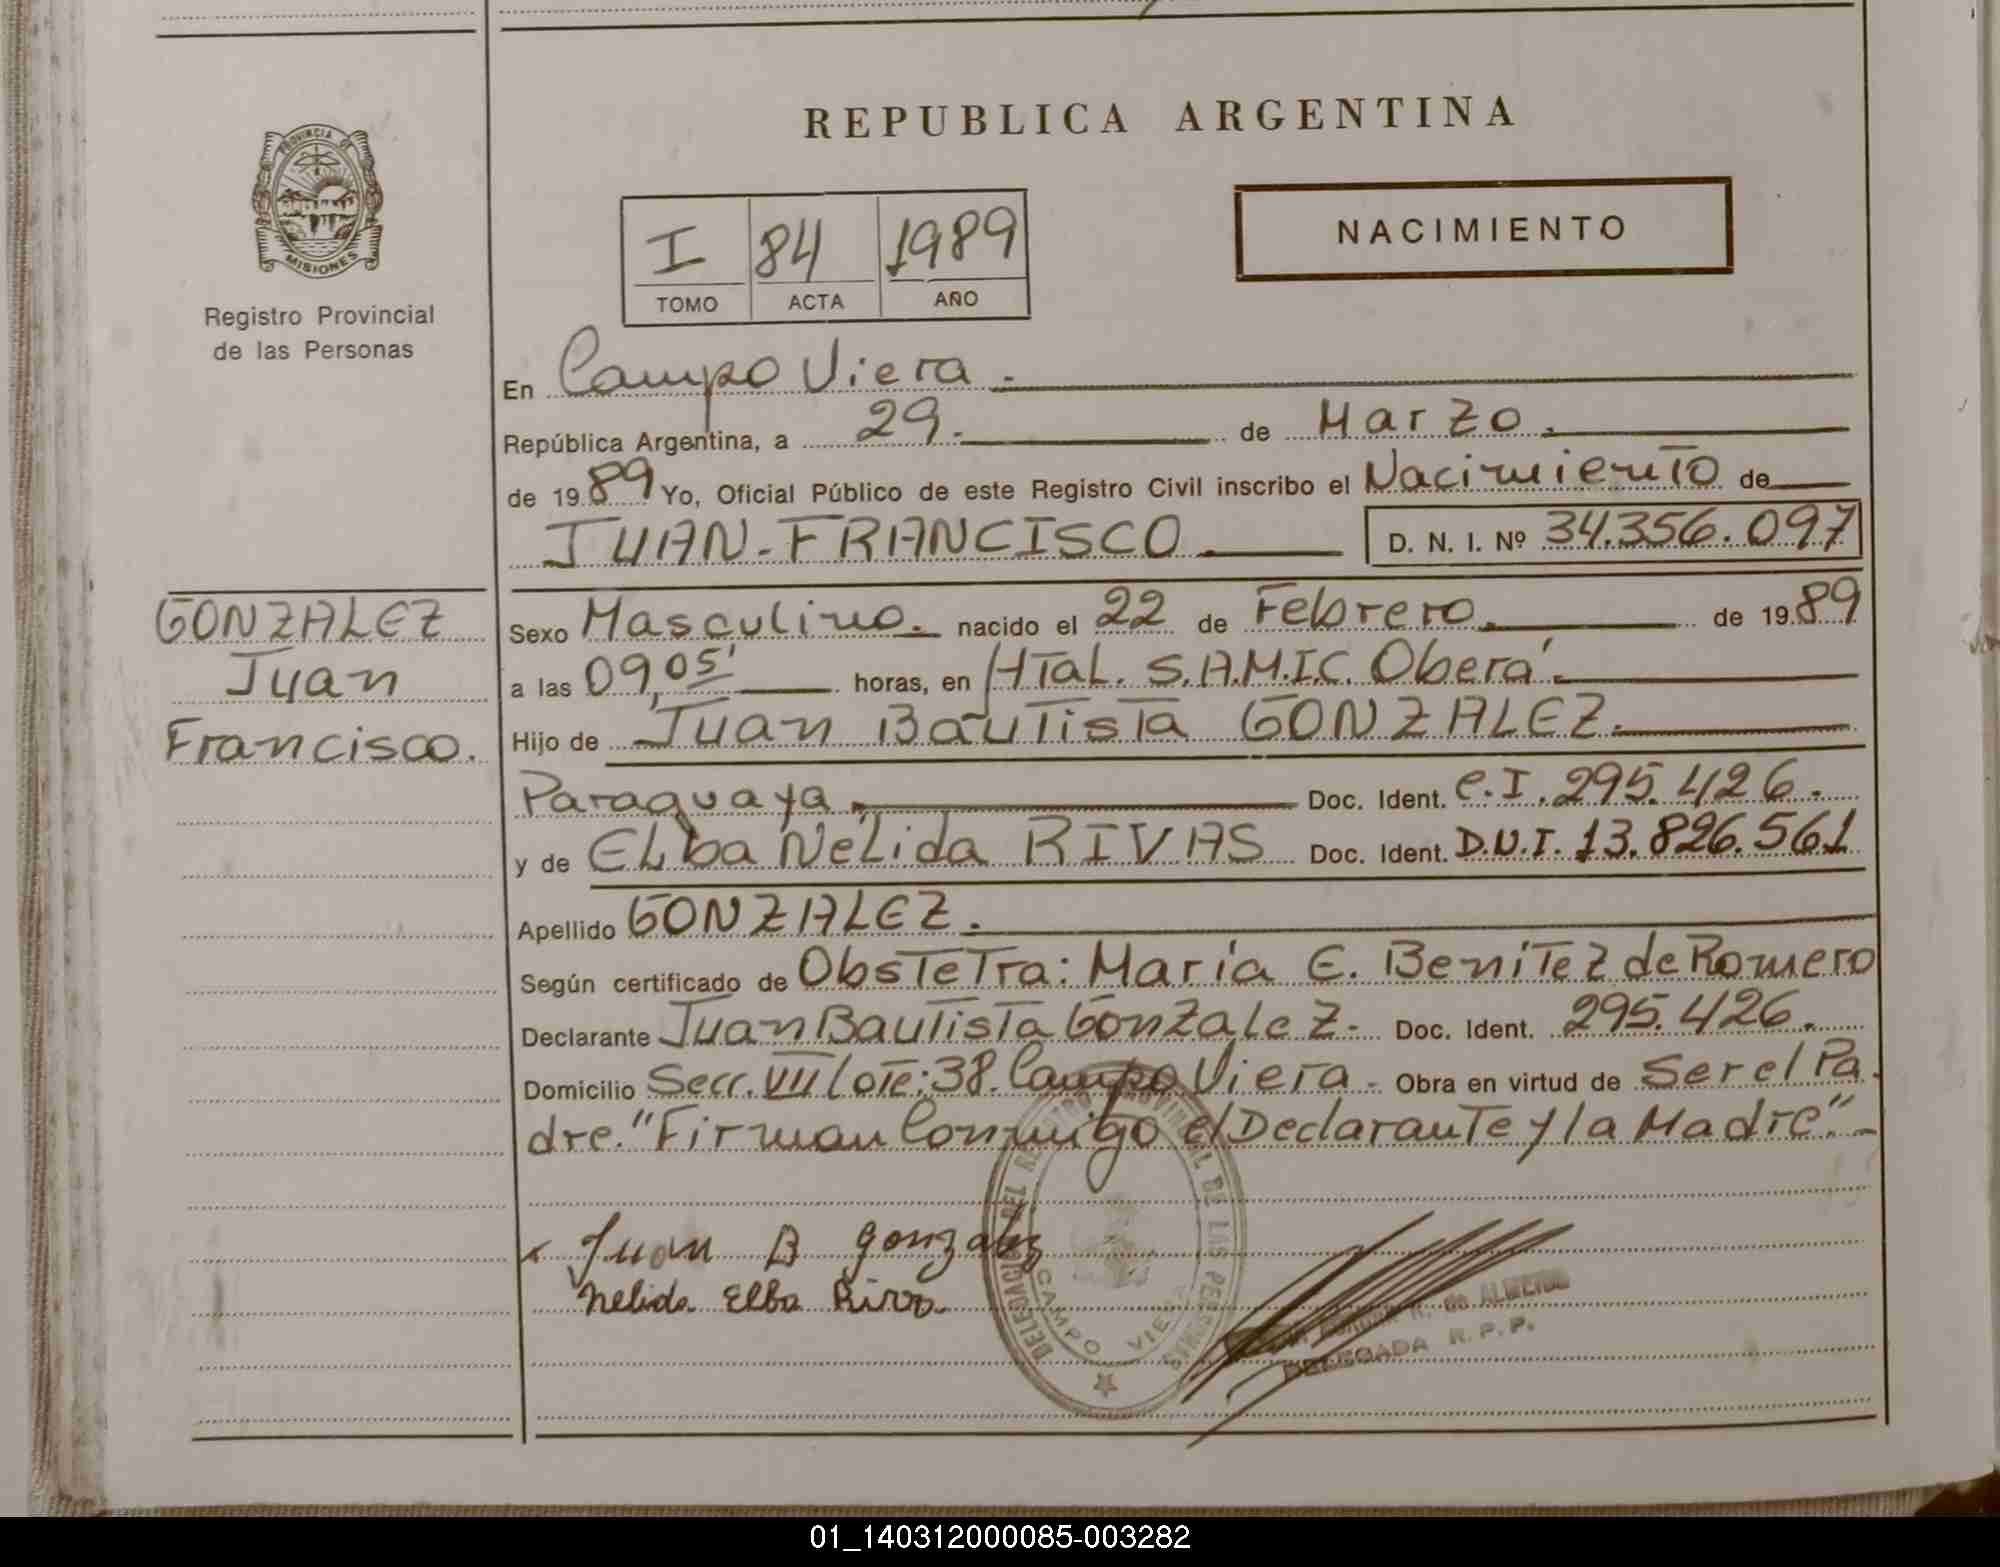 REPUBLICA ARGENTINA
PROVINCIA DE
MISIONES
Registro Provincial
de las Personas
I 84 1989
TOMO ACTA AÑO
NACIMIENTO
En Campo Viera.
República Argentina, a 29. de Marzo.
de 1989 Yo, Oficial Público de este Registro Civil inscribo el Nacimiento de
JUAN-FRANCISCO D. N. I. Nº 34.356.097
GONZALEZ
Juan
Francisco.
Sexo Masculino. nacido el 22 de Febrero. de 1989
a las 09,05' horas, en Htal. S.A.M.I.C. Oberá.
Hijo de Juan Bautista GONZALEZ.
Paraguaya Doc. Ident. C.I. 295.426.
y de ELba NéLida RIVAS Doc. Ident. D.N.I. 13.826.561
Apellido GONZALEZ.
Según certificado de Obstetra: María E. Benítez de Romero
Declarante Juan Bautista Gonzalez. Doc. Ident. 295.426.
Domicilio Secc. VII Lote: 38. Campo Viera. Obra en virtud de Ser el Pa
dre. "Firman Conmigo el Declarante y la Madre".
Juan B gonzalez
Nelida Elba Rivas
DELEGACION DEL REGISTRO PROVINCIAL DE LAS PERSONAS
CAMPO VIERA
R. de ALMEIDA
DELEGADA R.P.P.
01_140312000085-003282